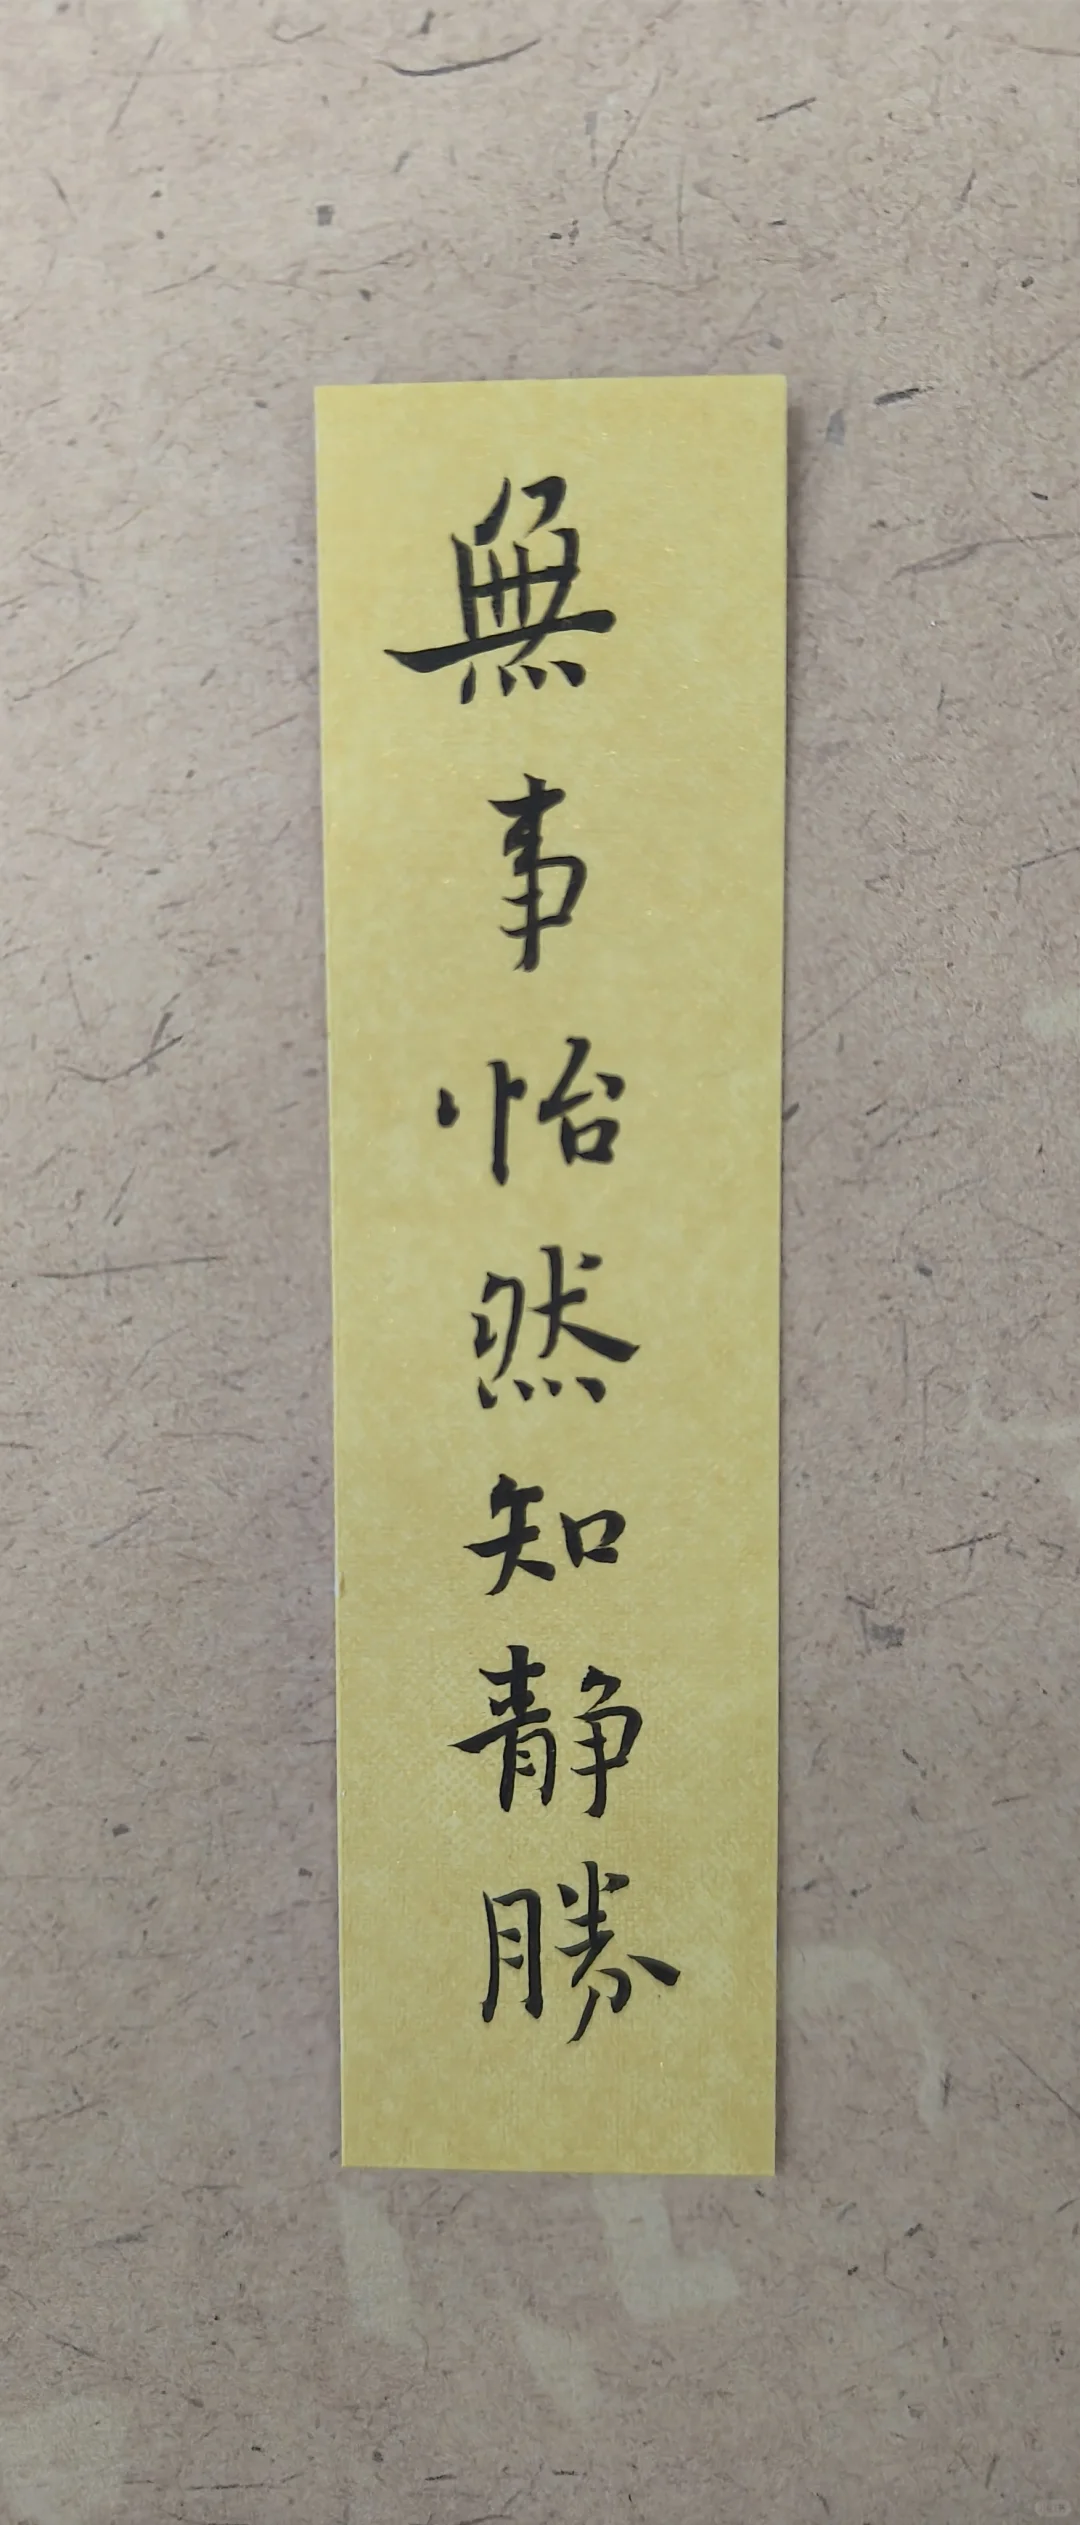 無事怡然知静勝